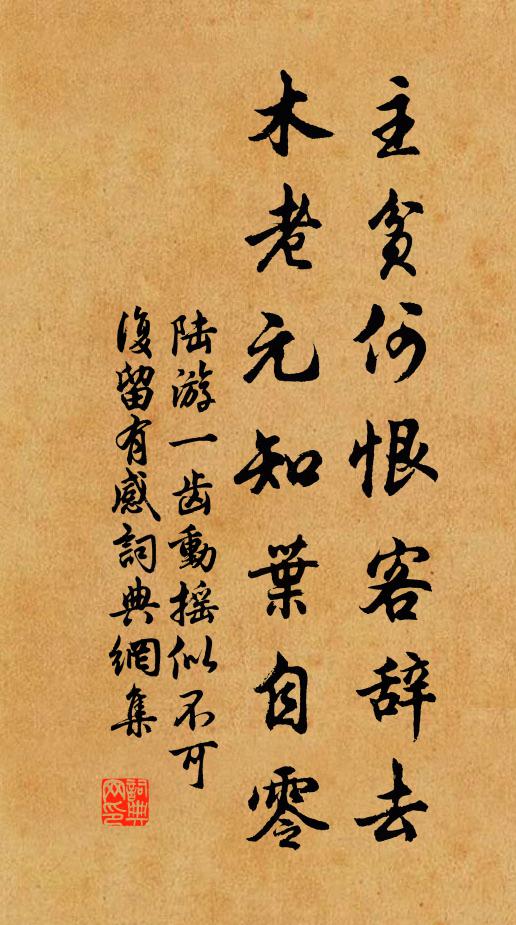 主貧何恨客辞去
木老元知葉自零
陆游一齿動摇似不可
復留有感詞典網集
詞典
网印